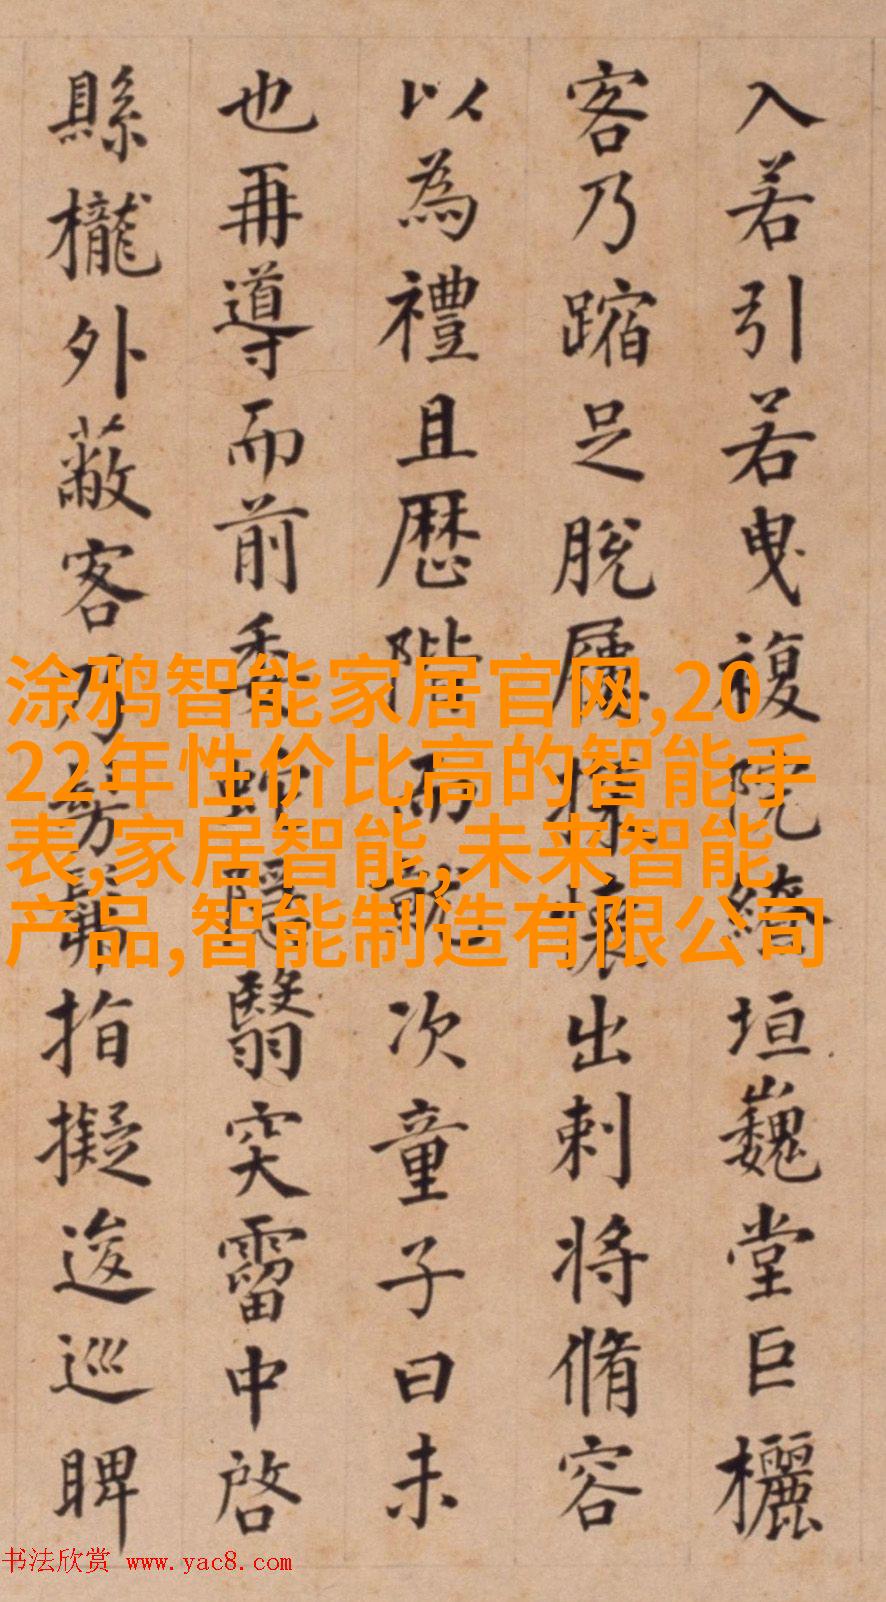 入若引若曳複院繚垣巍堂巨欐
客乃蹜足脫屨摳懷出刺將脩容
以為禮且歷階而就次童子曰未
也再導而前委蛇隱翳突霤中啓
縣櫳外蔽客乃髣髴指擬逡巡睥
涂鸦智能家居官网,20
22年性价比高的智能手
表,家居智能,未来智能
产品,智能制造有限公司
书法欣赏 www.yac8.com